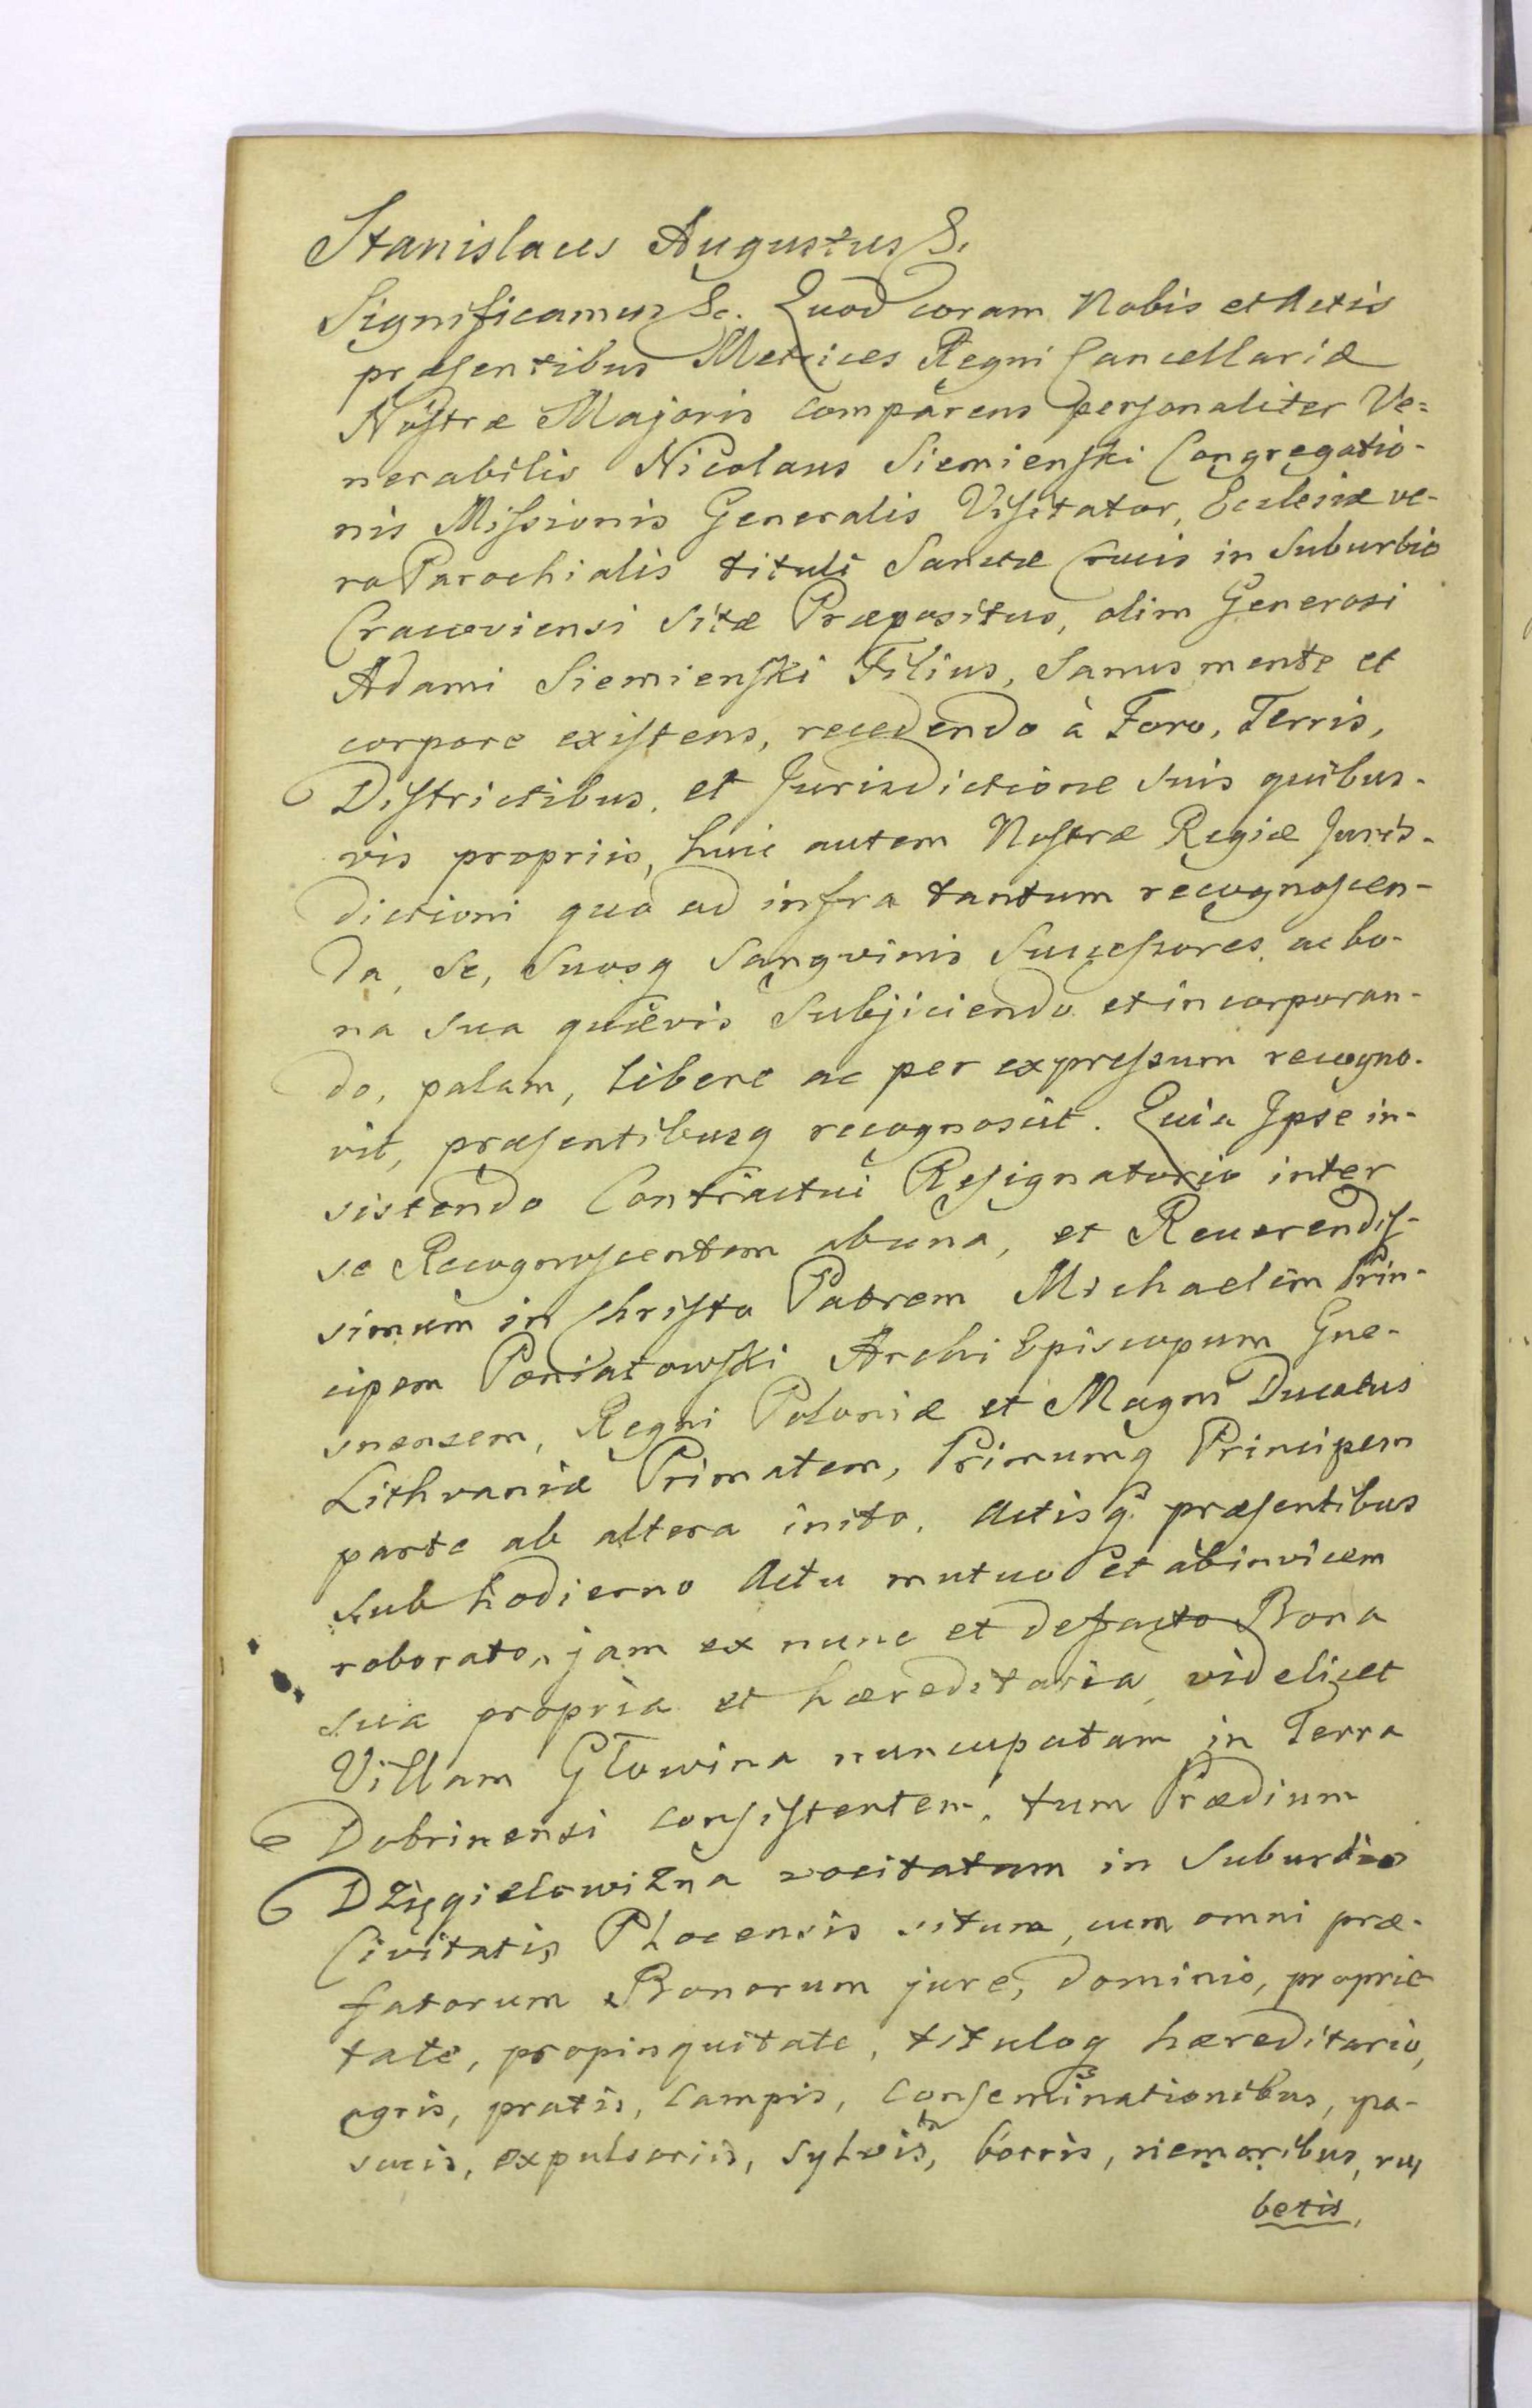 Stanislaus Augustus &.
Significamus &c. Quod coram Nobis et Actis
præsentibus Metrices Regni Cancellariæ
Nostræ Majoris comparens personaliter Ve=
nerabilis Nicolaus Siemienski Congregatio-
nis Missionis Generalis Visitator, Ecclesiæ ve-
ro Parochialis tituli Sanctæ Crucis in Suburbio
Cracoviensi sitæ Præpositus, olim Generosi
Adami Siemienski Filius, Sanus mente et
corpore existens, recedendo à Foro, Terris,
Districtibus, et Jurisdictione suis quibus-
vis propriis, huic autem Nostræ Regiæ Juris-
dictioni quo ad infra tantum recognoscen-
da, se, suosq Sangvinis Successores, ac bo-
na sua quævis Subjiciendo et incorporan-
do, palam, libere ac per expressum recogno-
vit, præsentibusq recognoscit. Quia Ipse in-
sistendo Contractui Resignatorio inter
se Recognoscentem ab una, et Reverendis-
simum in Christo Patrem Michaelem Prin-
cipem Poniatowski Archi Episcopum Gne-
snensem, Regni Poloniæ et Magni Ducatus
Lithvaniæ Primatem, Primumq Principem
parte ab altera inito, Actisq præsentibus
sub hodierno Actu mutuo et ab invicem
roborato, jam ex nunc et de facto Bona
sua propria et hæreditaria videlicet
Villam Głowina nuncupatam in Terra
Dobrinensi consistentem, tum Prædium
Dzięgielowizna vocitatum in Suburbio
Civitatis Plocensis situm, cum omni præ-
fatorum Bonorum jure, dominio, proprie
tate, propinquitate, tituloq hæreditario,
agris, pratis, campis, conseminationibus, pa-
scuis, expulsoriis, sylvis, borris, nemoribus, ru
betis,